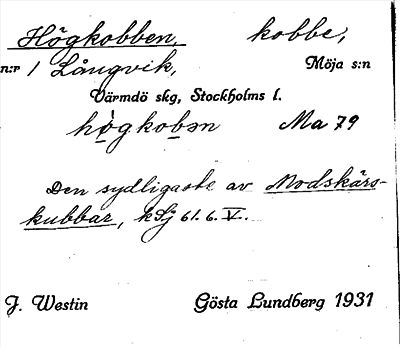 Högkobben, kobbe,
n:r 1 Långvik, Möja s:n
Värmdö skg, Stockholms l.
hò̲gkob̲ən Ma 79
Den sydligaste av Modskärs-
kubbar, kSj 61. 6. V..
J. Westin Gösta Lundberg 1931